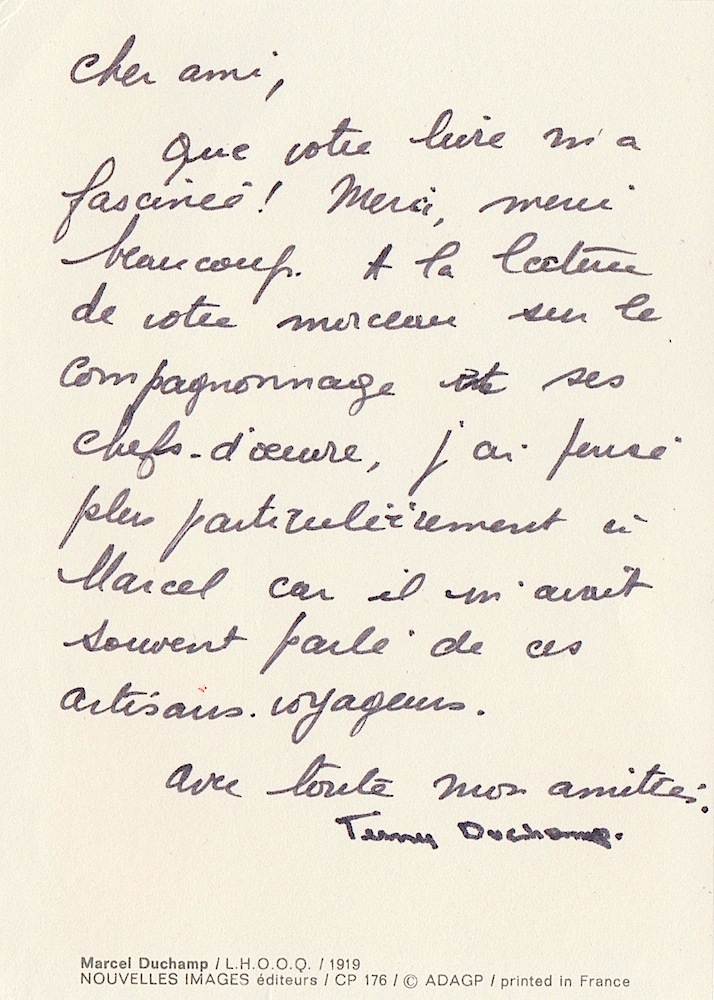 Cher ami,
Que votre livre m'a
fascinée! Merci, merci
beaucoup. A la lecture
de votre morceau sur le
compagnonnage et ses
chefs-d'œuvre, j'ai pensé
plus particulièrement à
Marcel car il m'avait
souvent parlé de ces
artisans-voyageurs.
Avec toute mon amitié.
Teeny Duchamp.
Marcel Duchamp / L.H.O.O.Q. / 1919
NOUVELLES IMAGES éditeurs / CP 176 / © ADAGP / printed in France